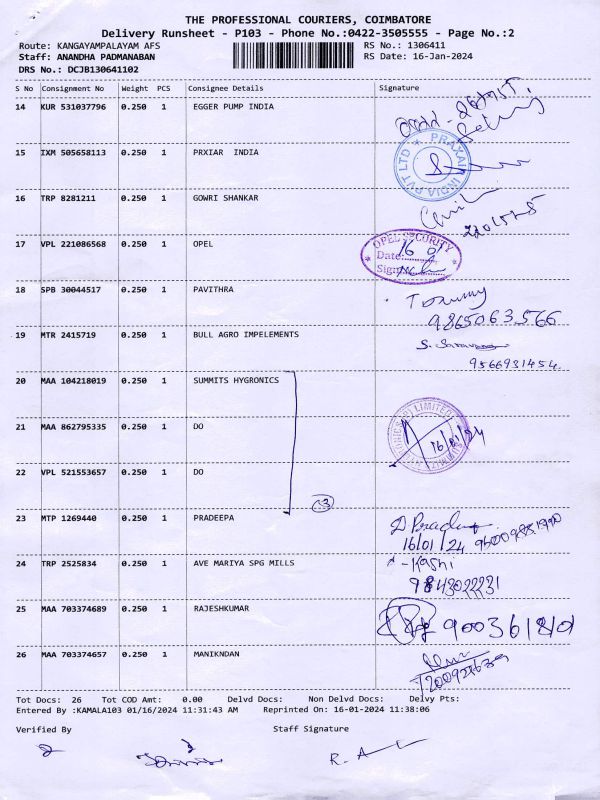 THE PROFESSIONAL COURIERS, COIMBATORE
Delivery Runsheet - P103 - Phone No.:0422-3505555 - Page No.:2
Route: KANGAYAMPALAYAM AFS RS No.: 1306411
Staff: ANANDHA PADMANABAN RS Date: 16-Jan-2024
DRS No.: DCJB130641102
S No Consignment No Weight PCS Consignee Details Signature
14 KUR 531037796 0.250 1 EGGER PUMP INDIA
15 IXM 505658113 0.250 1 PRXIAR INDIA
PRAXAIR INDIA PVT LTD
16 TRP 8281211 0.250 1 GOWRI SHANKAR
17 VPL 221086568 0.250 1 OPEL
OPEL SECURITY
Date: 16 01
Sign
18 SPB 30044517 0.250 1 PAVITHRA
9865063566
19 MTR 2415719 0.250 1 BULL AGRO IMPELEMENTS
9566931454
20 MAA 104218019 0.250 1 SUMMITS HYGRONICS
21 MAA 862795335 0.250 1 DO
LIMITED
16/01/24
22 VPL 521553657 0.250 1 DO
3
23 MTP 1269440 0.250 1 PRADEEPA
16/01/24
24 TRP 2525834 0.250 1 AVE MARIYA SPG MILLS
Kashi
9843022231
25 MAA 703374689 0.250 1 RAJESHKUMAR
26 MAA 703374657 0.250 1 MANIKNDAN
Tot Docs: 26 Tot COD Amt: 0.00 Delvd Docs: Non Delvd Docs: Delvy Pts:
Entered By :KAMALA103 01/16/2024 11:31:43 AM Reprinted On: 16-01-2024 11:38:06
Verified By Staff Signature
R. A